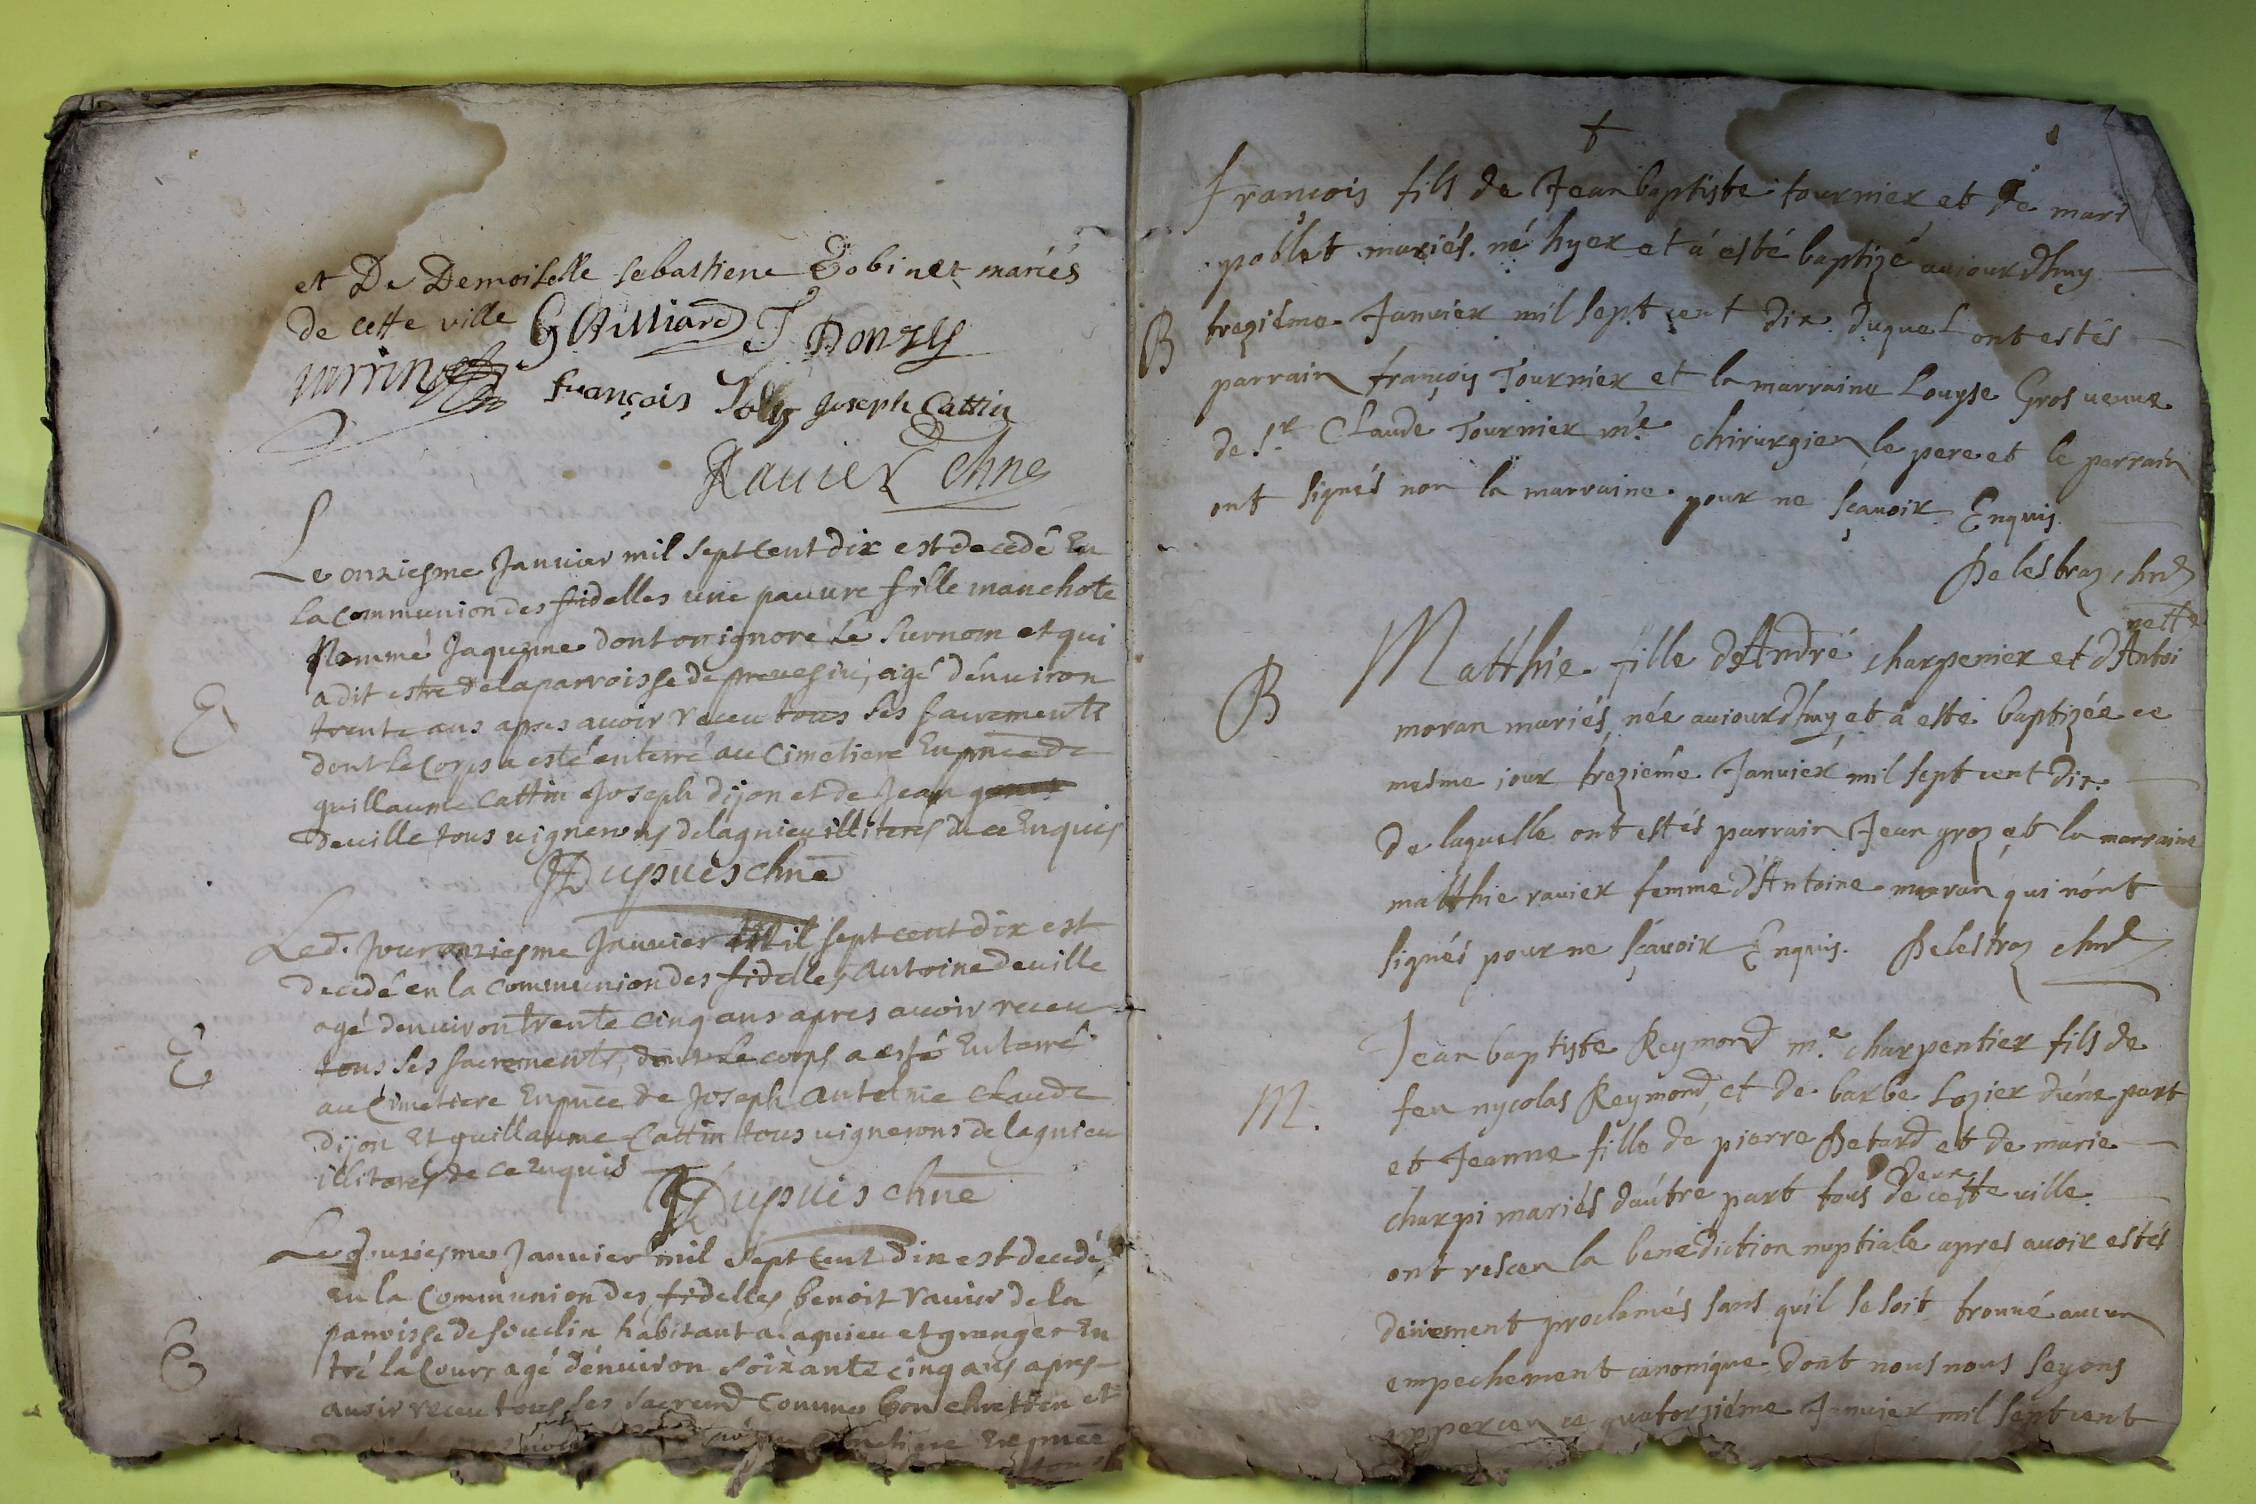 et De Demoiselle sebastiene Bobinet mariés
de cette ville GAilliard J Donzy
françois Joly joseph Cattin
Ravier chne
Le onziesme Janvier mil sept cent dix est decedé En
la communion des fidelles une pauvre fille manchote
Nommé Jaquême dont on ignore Le surnom et qui
a dit estre de la parroisse de prevesin, agé d'environ
trente ans apres avoir receu tous ses sacrements
E
dont Le corps a esté enterré au Cimetiere En pnce de
guillaume Cattin Joseph dijon et de Jean
Deville tous vignerons de lagnieu illiteres de ce Enquis
JDupuis chne
Led. Jour onziesme Janvier Mil sept cent dix est
decedé en la communion des fidelles Antoine deville
agé denviron trente cinq ans apres avoir receu
E
tous ses sacrements, dont Le corps a esté Enterré
au Cimetiere En pnce de Joseph Antelme Claude
dijon Et guillaume Cattin tous vignerons de lagnieu
illiterés de ce Enquis
JDupuis chne
Le dousiesme Janvier mil sept cent dix est decedé
en la Communion des fidelles benoit Ravier de la
parroisse de souclin habitant a lagnieu et granger En
E
tré la Cour agé d'environ soixante cinq ans apres
avoir receu tous ses sacremd Comme bon chretien et
cimetiere En pnce
françois fils de Jean baptiste tournier et de marie
poblet mariés. né hyer et a esté baptizé aujourdhuy
B
trezième Janvier mil sept cent dix. duquel ont estés
parrain françois Tournier et la marraine Louyse Gros veuve
de Sr. Claude Tournier me. chirurgien le pere et le parrain
ont signés non la marraine pour ne sçavoir Enquis.
Delestraz chne
nette
Matthie fille d'André charpenier et d'Antoi
B
moran mariés, née aujourdhuy et a esté baptizée ce
mesme jour trezième Janvier mil sept cent dix.
de laquelle ont estés parrain Jean groz et la marraine
matthie ravier femme d'Antoine moran qui n'ont
signés pour ne sçavoir Enquis. Delestraz chne
Jean baptiste Reymond me. charpentier fils de
M.
feu nycolas Reymond, et de barbe Lozier d'une part
et Jeanne fille de pierre Betard et de marie
deux
charpi mariés d'autre part tous de cette ville.
ont resceu la benediction nuptiale apres avoir estés
deüement proclamés sans qu'il se soit trouvé aucun
empechement canonique dont nous nous soyons
apperceu ce quatorzième Janvier mil sept cent